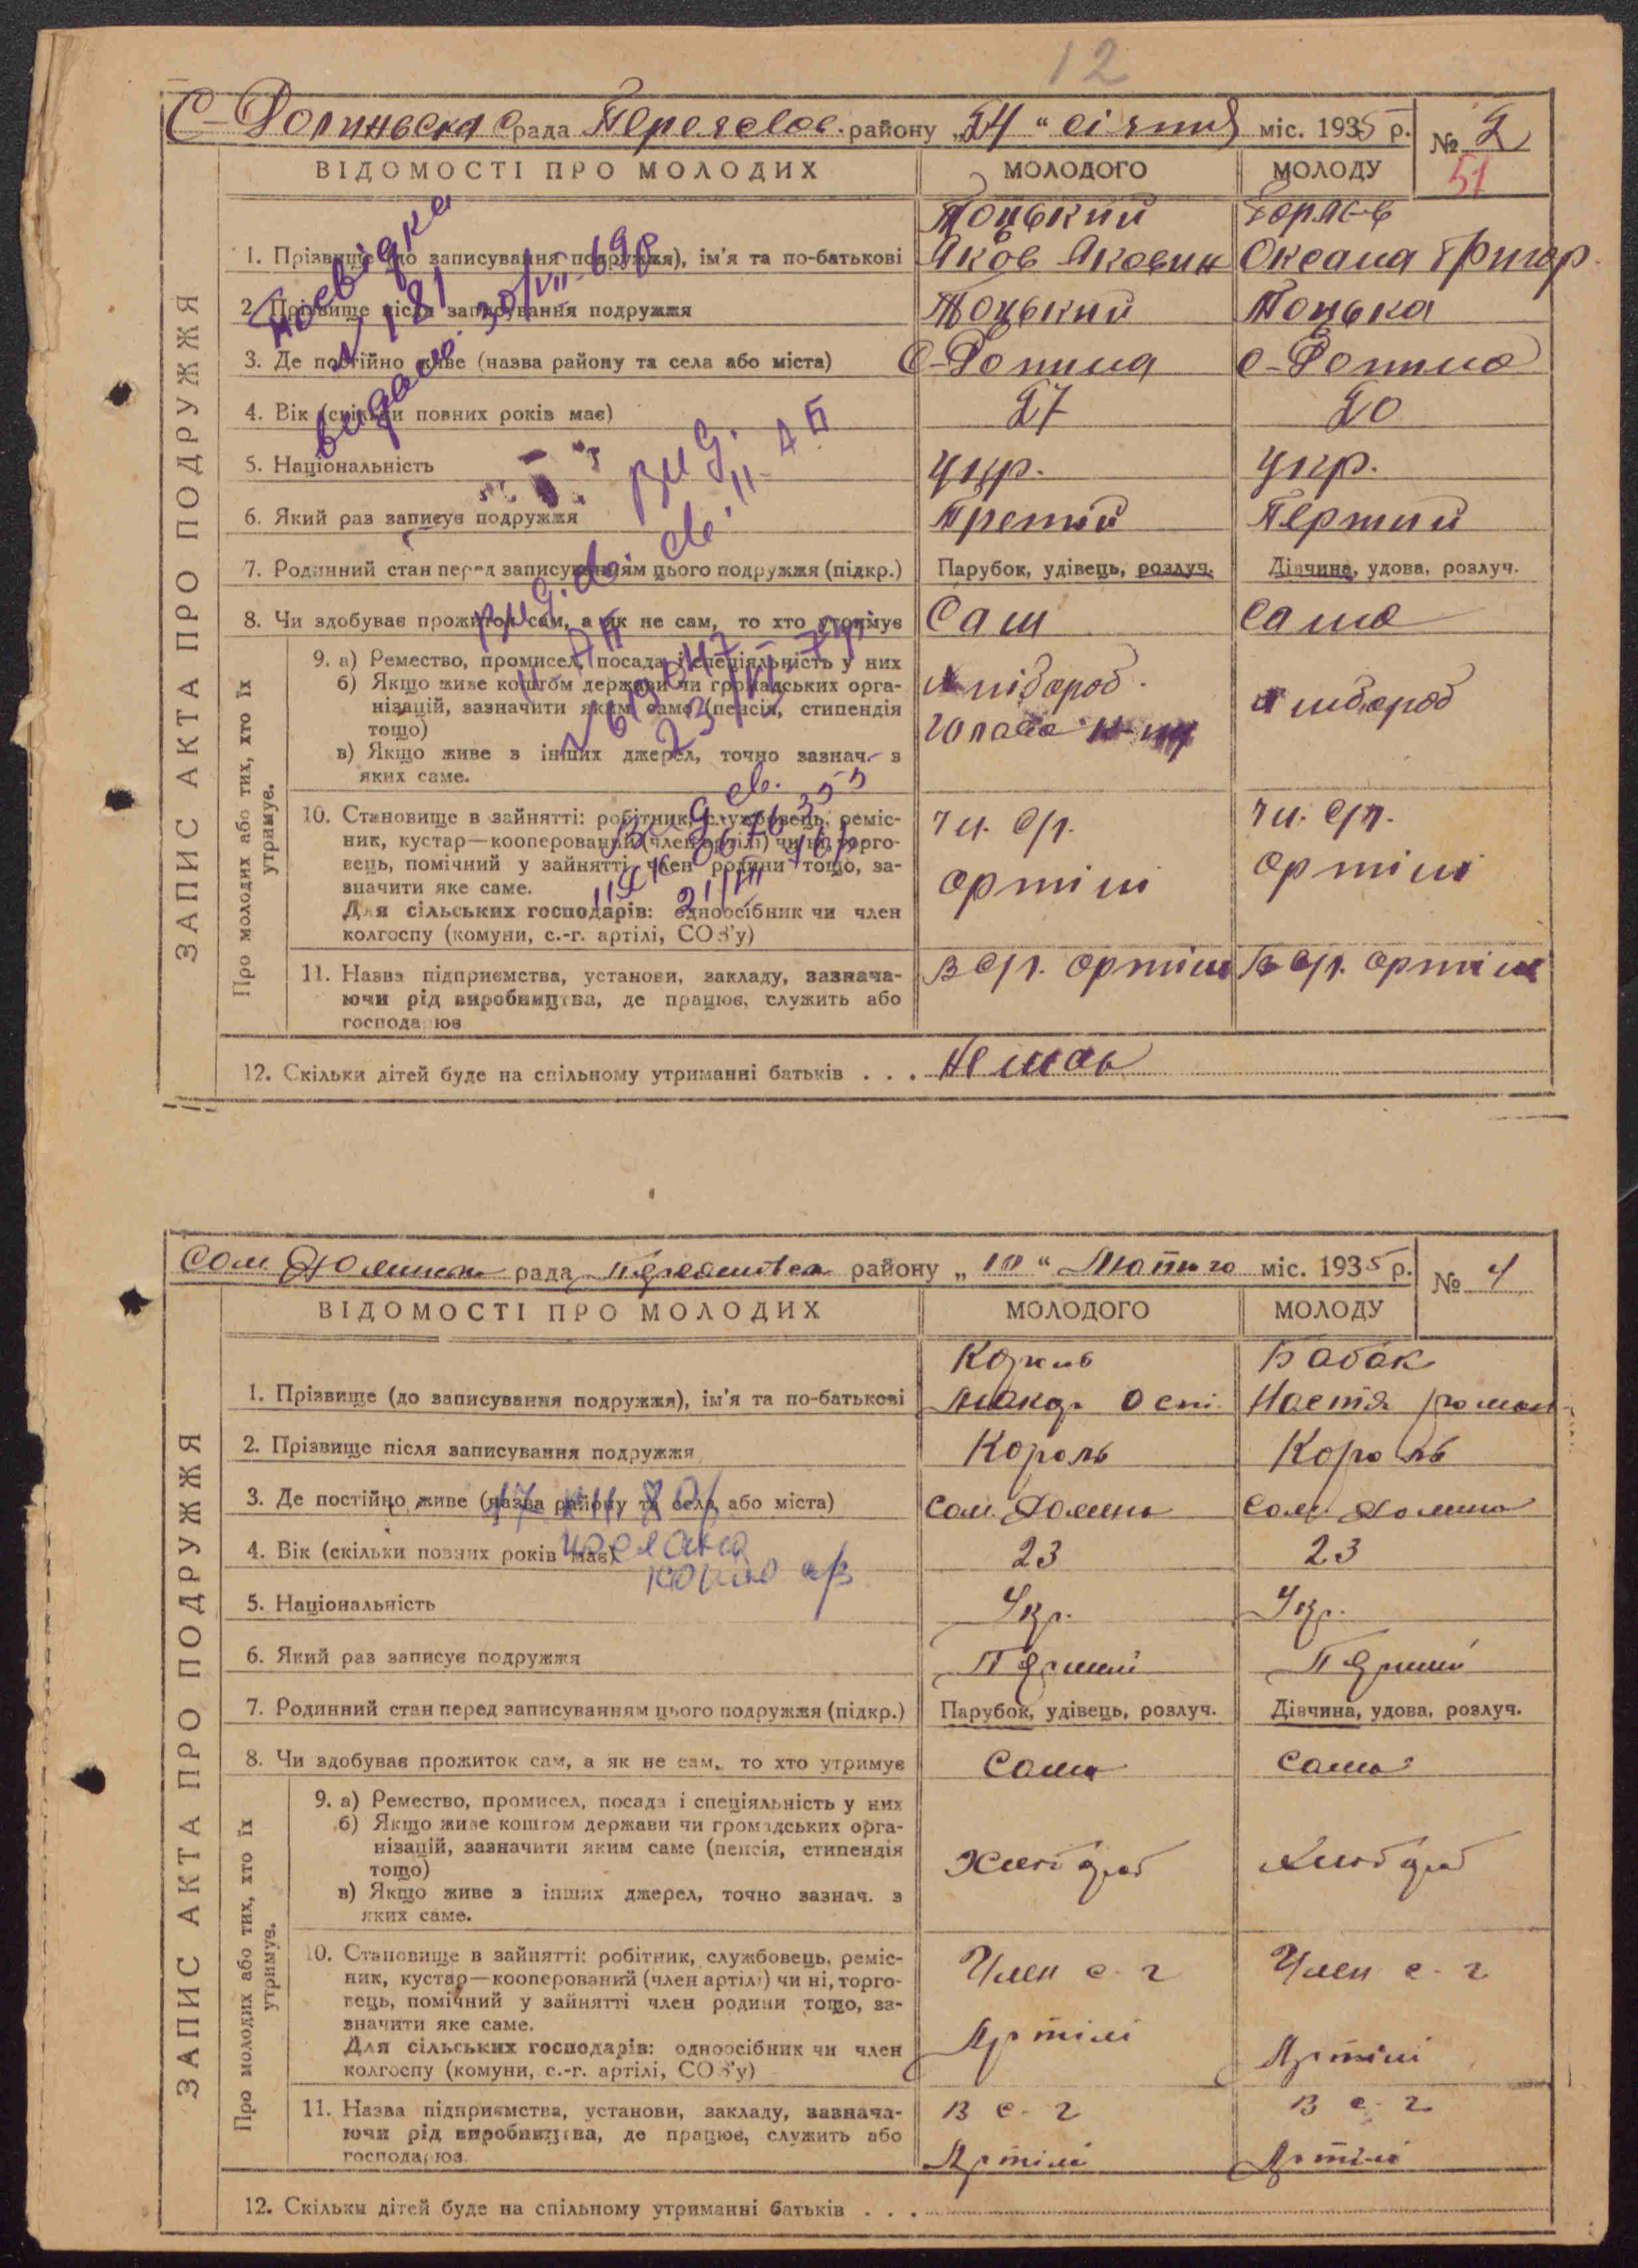 12
С-Долинська с рада Переяслов. району „24" січня міс. 1935 р. № 2
51
ВІДОМОСТІ ПРО МОЛОДИХ МОЛОДОГО МОЛОДУ
ЗАПИС АКТА ПРО ПОДРУЖЖЯ
Тоцький
1. Прізвище (до записування подружжя), ім'я та по-батькові Яков Якович Оксана Григор.
2. Прізвище після записування подружжя Тоцький Тоцька
3. Де постійно живе (назва району та села або міста) С-Долина С-Долина
4. Вік (скільки повних років має) 27 20
5. Національність укр. укр.
6. Який раз записує подружжя Третій Перший
7. Родинний стан перед записуванням цього подружжя (підкр.) Парубок, удівець, розлуч. Дівчина, удова, розлуч.
8. Чи здобуває прожиток сам, а як не сам, то хто утримує Сам сама
Про молодих або тих, хто їх утримує.
9. а) Ремество, промисел, посада і спеціяльність у них
б) Якщо живе коштом держави чи громадських орга-
нізацій, зазначити яким саме (пенсія, стипендія
тощо)
в) Якщо живе з інших джерел, точно зазнач. з
яких саме.
хлібороб
хлібороб
10. Становище в зайнятті: робітник, службовець, реміс-
ник, кустар—кооперований (член артілі) чи ні, торго-
вець, помічний у зайнятті член родини тощо, за-
значити яке саме.
Для сільських господарів: одноосібник чи член
колгоспу (комуни, с.-г. артілі, СОЗ'у)
чл. с/г. чл. с/г.
артілі артілі
11. Назва підприємства, установи, закладу, зазнача- В с/г. артілі В с/г. артілі
ючи рід виробництва, де працює, служить або
господарює
12. Скільки дітей буде на спільному утриманні батьків . . . Немає
Довідка
№ 181
видано 30/VII-69р
вид. св.
21/VII 76р
Сом Долинсь рада Переяслівсь району „10" Лютого міс. 1935 р. № 4
ВІДОМОСТІ ПРО МОЛОДИХ МОЛОДОГО МОЛОДУ
ЗАПИС АКТА ПРО ПОДРУЖЖЯ
Король Бабак
1. Прізвище (до записування подружжя), ім'я та по-батькові Макар Ости Настя роман
2. Прізвище після записування подружжя Король Король
3. Де постійно живе (назва району та села або міста) Сом. Долина Сом. Долина
4. Вік (скільки повних років має) 23 23
5. Національність Укр. Укр.
6. Який раз записує подружжя Перший Перший
7. Родинний стан перед записуванням цього подружжя (підкр.) Парубок, удівець, розлуч. Дівчина, удова, розлуч.
8. Чи здобуває прожиток сам, а як не сам, то хто утримує Сам Сама
Про молодих або тих, хто їх утримує.
9. а) Ремество, промисел, посада і спеціяльність у них
б) Якщо живе коштом держави чи громадських орга-
нізацій, зазначити яким саме (пенсія, стипендія
тощо)
в) Якщо живе з інших джерел, точно зазнач. з
яких саме.
Хлібороб Хлібороб
10. Становище в зайнятті: робітник, службовець, реміс-
ник, кустар—кооперований (член артілі) чи ні, торго-
вець, помічний у зайнятті член родини тощо, за-
значити яке саме.
Для сільських господарів: одноосібник чи член
колгоспу (комуни, с.-г. артілі, СОЗ'у)
Член с-г Член с-г
Артілі Артілі
11. Назва підприємства, установи, закладу, зазнача- В с-г В с-г
ючи рід виробництва, де працює, служить або
господарює Артілі Артілі
12. Скільки дітей буде на спільному утриманні батьків . . .